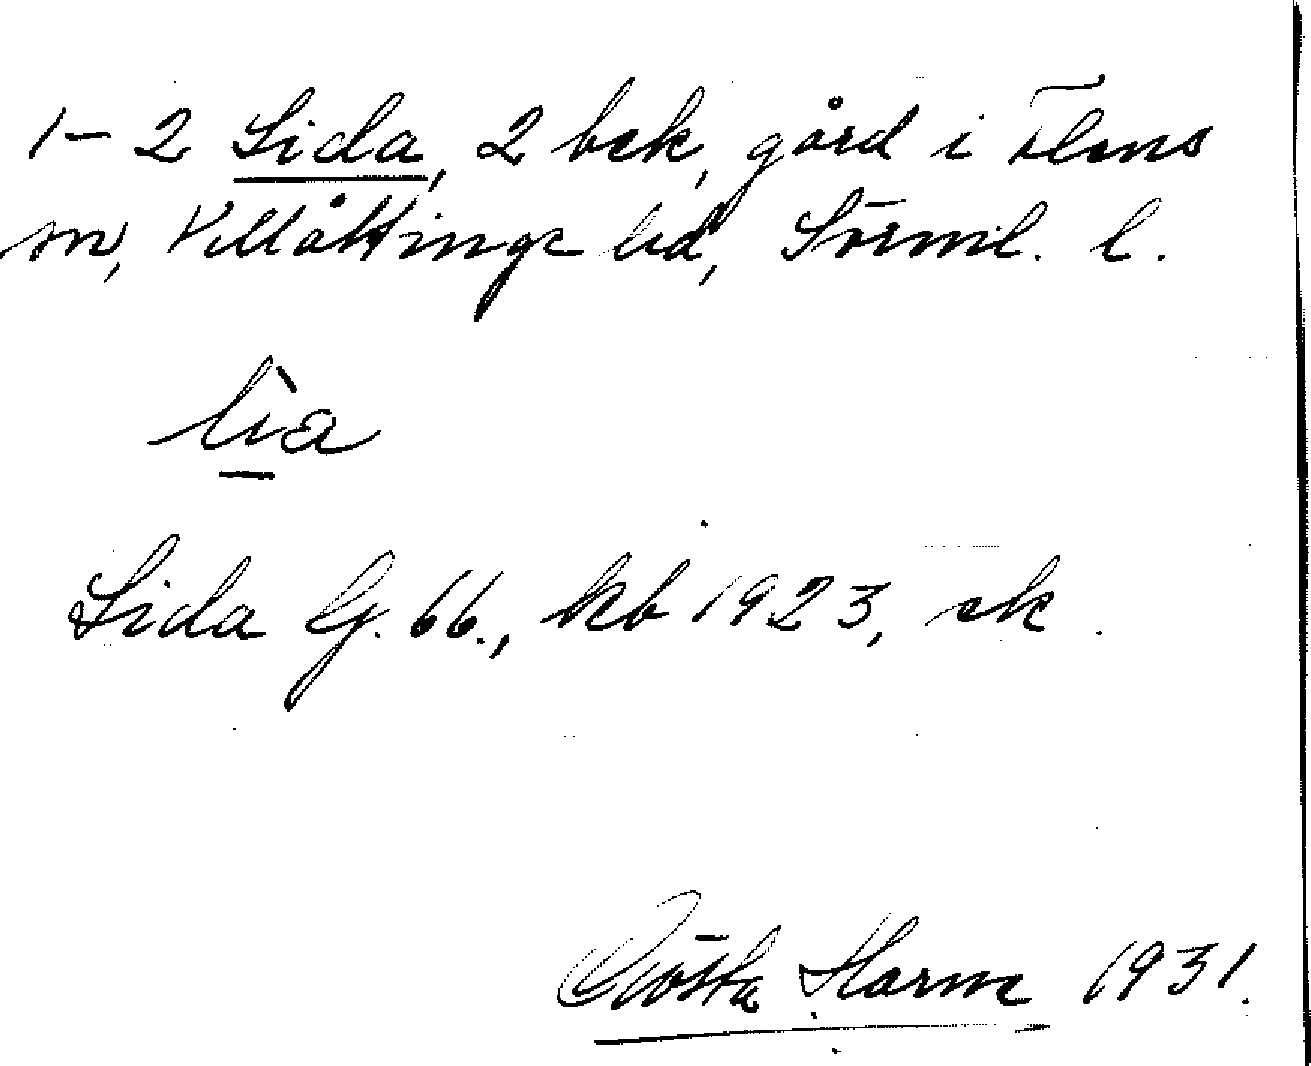 1-2 Lida, 2 bck, gård i Flens
sn, Villåttinge hd, Sörml. l.
lìa
Lida G. 66., kb 1923, ek.
Gösta Harne 1931.